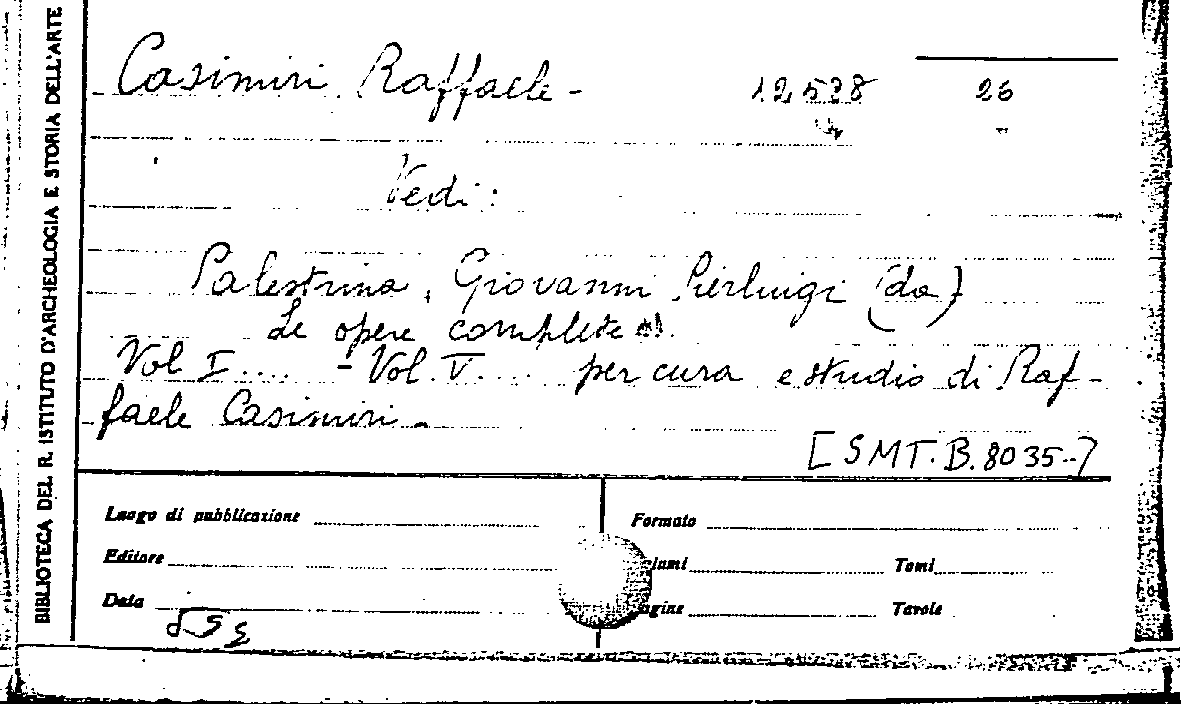 BIBLIOTECA DEL R. ISTITUTO D'ARCHEOLOGIA E STORIA DELL'ARTE
Casimiri Raffaele - 12538 26
Vedi:
Palestrina, Giovanni Pierluigi (da)
Le opere complete
Vol I.... - Vol. V.... per cura e studio di Raf-
faele Casimiri.-
[SMT.B.8035..]
Luogo di pubblicazione Formato
Editore lumi Tomi
Data agine Tavole